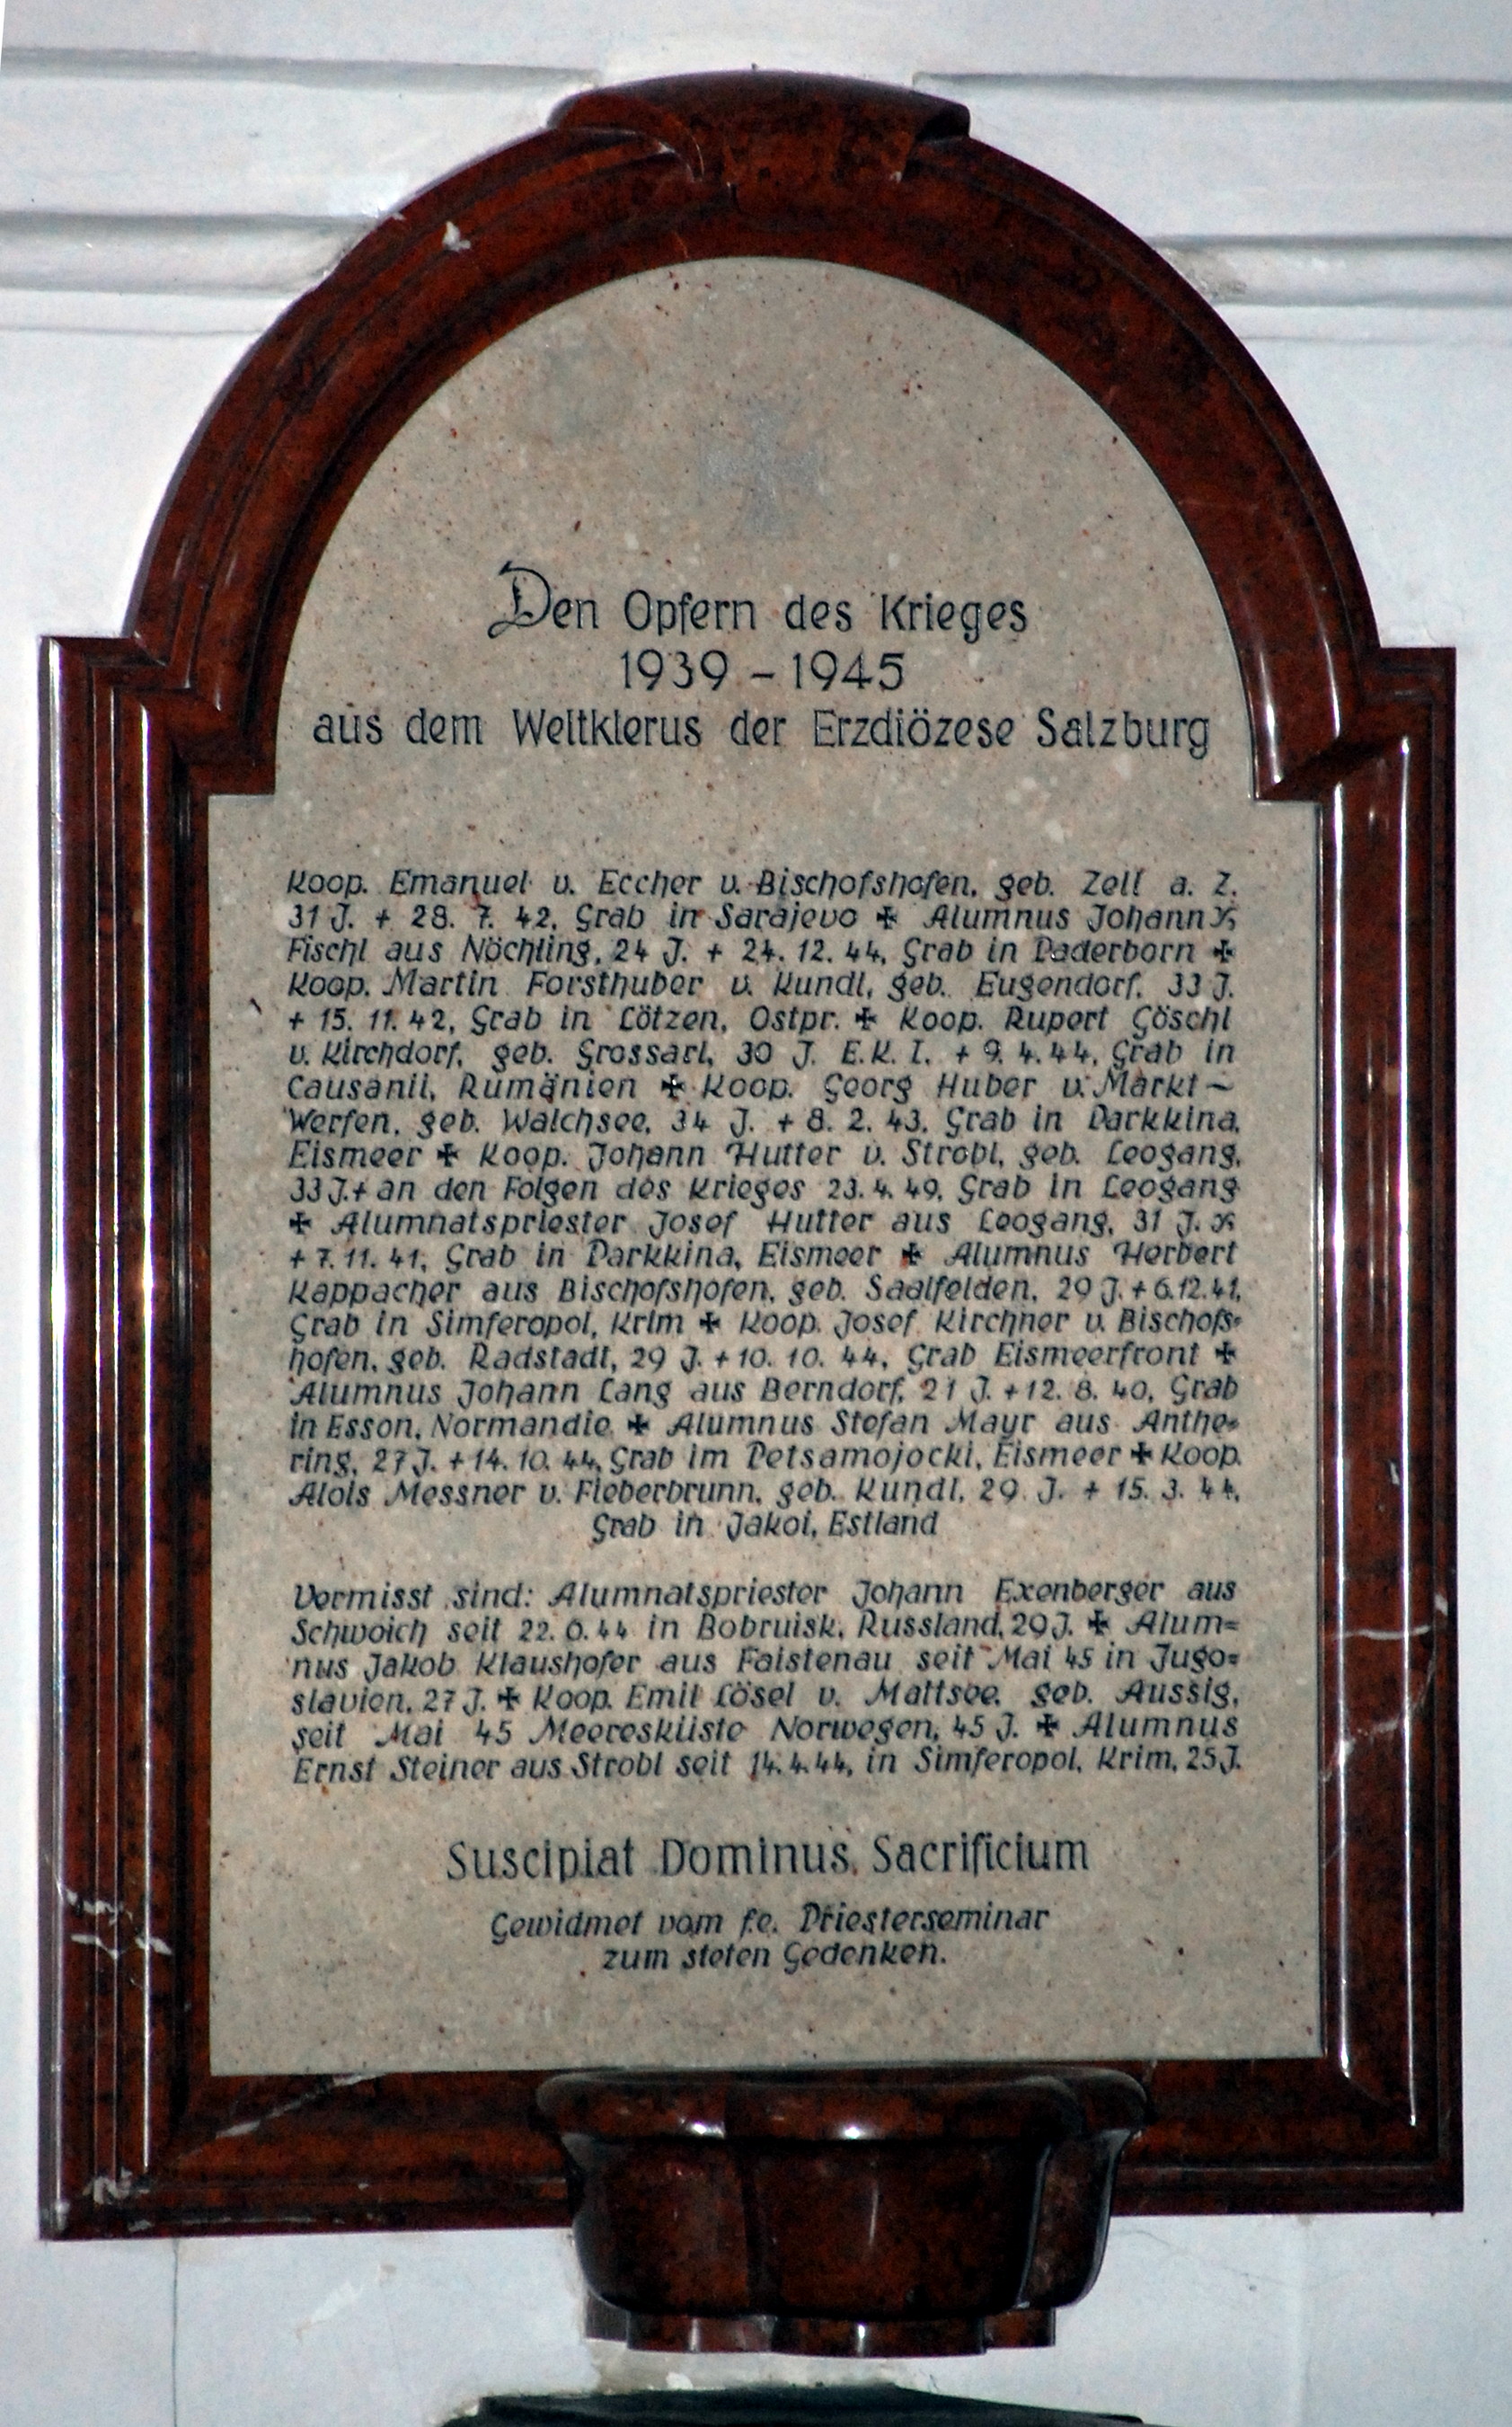 Den Opfern des Krieges
1939 – 1945
aus dem Weltklerus der Erzdiözese Salzburg
Koop. Emanuel v. Eccher v. Bischofshofen, geb. Zell a. Z.
31 J. + 28. 7. 42, Grab in Sarajevo ✠ Alumnus Johann
Fischl aus Nöchling, 24 J. + 24. 12. 44, Grab in Paderborn ✠
Koop. Martin Forsthuber v. Kundl, geb. Eugendorf, 33 J.
+ 15. 11. 42, Grab in Lötzen, Ostpr. ✠ Koop. Rupert Göschl
v. Kirchdorf, geb. Grossarl, 30 J. E.K. I. + 9. 4. 44, Grab in
Causanii, Rumänien ✠ Koop. Georg Huber v. Markt-
Werfen, geb. Walchsee, 34 J. + 8. 2. 43, Grab in Parkkina,
Eismeer ✠ Koop. Johann Hutter v. Strobl, geb. Leogang,
33 J. + an den Folgen des Krieges 23. 4. 49, Grab in Leogang
✠ Alumnatspriester Josef Hutter aus Leogang, 31 J.
+ 7. 11. 41, Grab in Parkkina, Eismeer ✠ Alumnus Herbert
Kappacher aus Bischofshofen, geb. Saalfelden, 29 J. + 6.12.41,
Grab in Simferopol, Krim ✠ Koop. Josef Kirchner v. Bischofs=
hofen, geb. Radstadt, 29 J. + 10. 10. 44, Grab Eismeerfront ✠
Alumnus Johann Lang aus Berndorf, 21 J. + 12. 8. 40, Grab
in Esson, Normandie ✠ Alumnus Stefan Mayr aus Anthe=
ring, 27 J. + 14. 10. 44, Grab im Petsamojocki, Eismeer ✠ Koop.
Alois Messner v. Fieberbrunn, geb. Kundl, 29 J. + 15. 3. 44,
Grab in Jakoi, Estland
Vermisst sind: Alumnatspriester Johann Exenberger aus
Schwoich seit 22. 6. 44 in Bobruisk, Russland, 29 J. ✠ Alum=
nus Jakob Klaushofer aus Faistenau seit Mai 45 in Jugo=
slavien, 27 J. ✠ Koop. Emil Lösel v. Mattsee, geb. Aussig,
seit Mai 45 Meeresküste Norwegen, 45 J. ✠ Alumnus
Ernst Steiner aus Strobl seit 14. 4. 44, in Simferopol, Krim, 25 J.
Suscipiat Dominus Sacrificium
Gewidmet vom f.e. Priesterseminar
zum steten Gedenken.